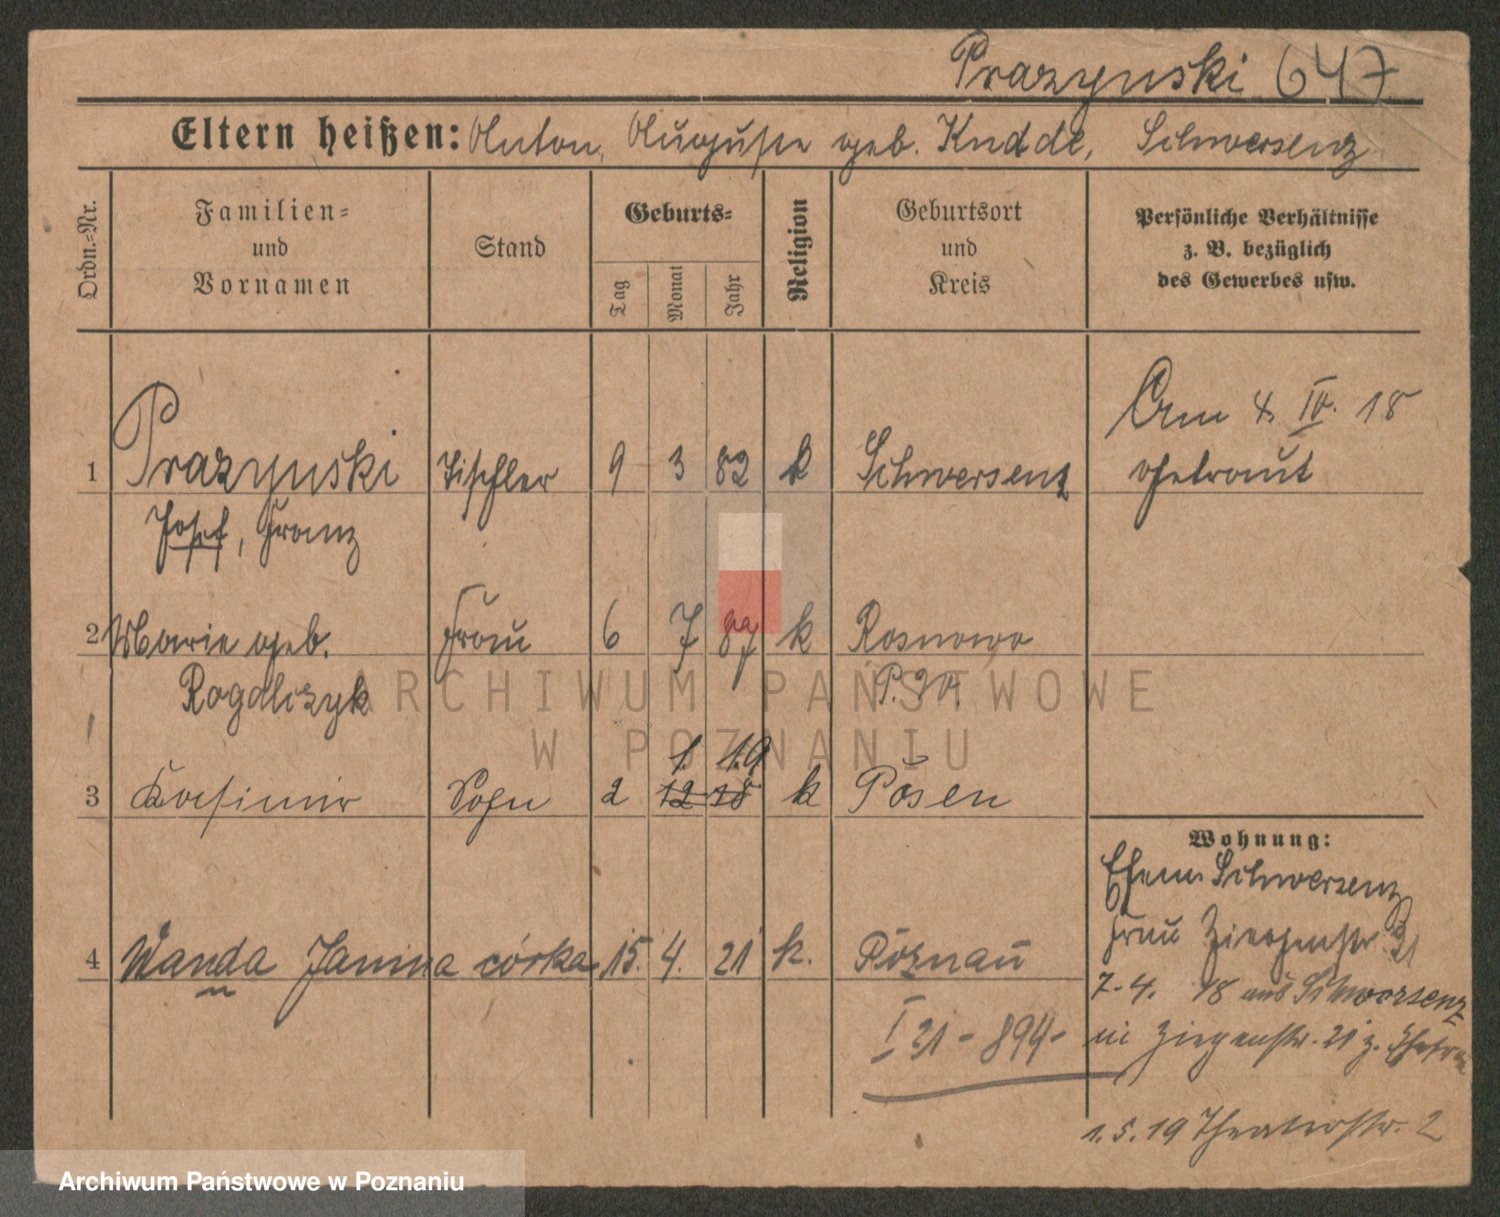 Prazynski 647
Eltern heißen: Anton, Auguste geb. Knddel, Schwersenz
Ordn.-Nr.
Familien- und Vornamen
Stand
Geburts-
Tag
Monat
Jahr
Religion
Geburtsort und Kreis
Persönliche Verhältnisse z. B. bezüglich des Gewerbes usw.
1 Prazynski Tischler 9 3 82 k Schwersenz
Josef, Franz
Am 4. IV. 18
getraut
2 Marie geb. Frau 6 7 87 k Rosnowo
Rogalczyk P.W.
1. 19
3 Kasimir Sohn 2 12 18 k Posen
4 Wanda Janina córka 15. 4. 21 k. Poznań
I 21 - 894 -
Wohnung:
Ehem. Schwersenz
Frau Ziegenstr 21
7. 4. 18 aus Schwersenz
in Ziegenstr. 21 z. Ehefrau
1. 5. 19 Theaterstr. 2
ARCHIWUM PAŃSTWOWE
W POZNANIU
Archiwum Państwowe w Poznaniu